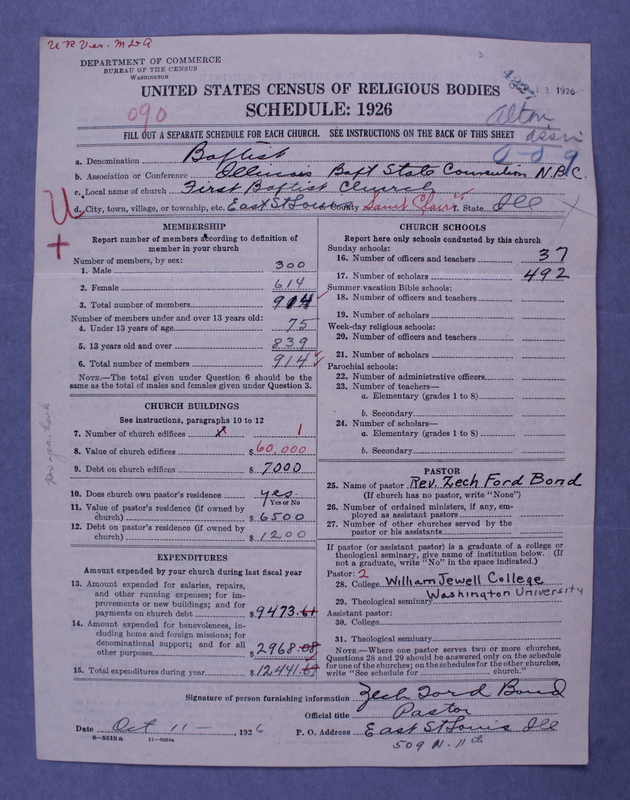 DEPARTMENT OF COMMERCE
BUREAU OF THE CENSUS
WASHINGTON
UNITED STATES CENSUS OF RELIGIOUS BODIES
SCHEDULE: 1926
1926
090
Alton
assn
FILL OUT A SEPARATE SCHEDULE FOR EACH CHURCH. SEE INSTRUCTIONS ON THE BACK OF THIS SHEET
a. Denomination Baptist
b. Association or Conference Illinois Bapt State Convention N.B.C.
c. Local name of church First Baptist Church
d. City, town, village, or township, etc. East St Louis County Saint Clair State Ill
MEMBERSHIP
Report number of members according to definition of
member in your church
Number of members, by sex:
1. Male 300
2. Female 614
3. Total number of members 914
Number of members under and over 13 years old:
4. Under 13 years of age 75
5. 13 years old and over 839
6. Total number of members 914
NOTE.—The total given under Question 6 should be the
same as the total of males and females given under Question 3.
CHURCH BUILDINGS
See instructions, paragraphs 10 to 12
7. Number of church edifices 1
8. Value of church edifices $60,000
9. Debt on church edifices $7000
10. Does church own pastor's residence yes
Yes or No
11. Value of pastor's residence (if owned by
church) $6500
12. Debt on pastor's residence (if owned by
church) $1200
EXPENDITURES
Amount expended by your church during last fiscal year
13. Amount expended for salaries, repairs,
and other running expenses; for im-
provements or new buildings; and for
payments on church debt $9473.61
14. Amount expended for benevolences, in-
cluding home and foreign missions; for
denominational support; and for all
other purposes $2968.08
15. Total expenditures during year $12,441.69
CHURCH SCHOOLS
Report here only schools conducted by this church
Sunday schools:
16. Number of officers and teachers 37
17. Number of scholars 492
Summer vacation Bible schools:
18. Number of officers and teachers
19. Number of scholars
Week-day religious schools:
20. Number of officers and teachers
21. Number of scholars
Parochial schools:
22. Number of administrative officers
23. Number of teachers—
a. Elementary (grades 1 to 8)
b. Secondary
24. Number of scholars—
a. Elementary (grades 1 to 8)
b. Secondary
PASTOR
25. Name of pastor Rev. Zech Ford Bond
(If church has no pastor, write "None")
26. Number of ordained ministers, if any, em-
ployed as assistant pastors
27. Number of other churches served by the
pastor or his assistants
If pastor (or assistant pastor) is a graduate of a college or
theological seminary, give name of institution below. (If
not a graduate, write "No" in the space indicated.)
Pastor: 2
28. College William Jewell College
29. Theological seminary Washington University
Assistant pastor:
30. College
31. Theological seminary
NOTE.—Where one pastor serves two or more churches,
Questions 28 and 29 should be answered only on the schedule
for one of the churches; on the schedules for the other churches,
write "See schedule for church."
Signature of person furnishing information Zech Ford Bond
Official title Pastor
Date Oct 11 — , 1926 P. O. Address East St Louis Ill
509 N. 11th
8—5318 a